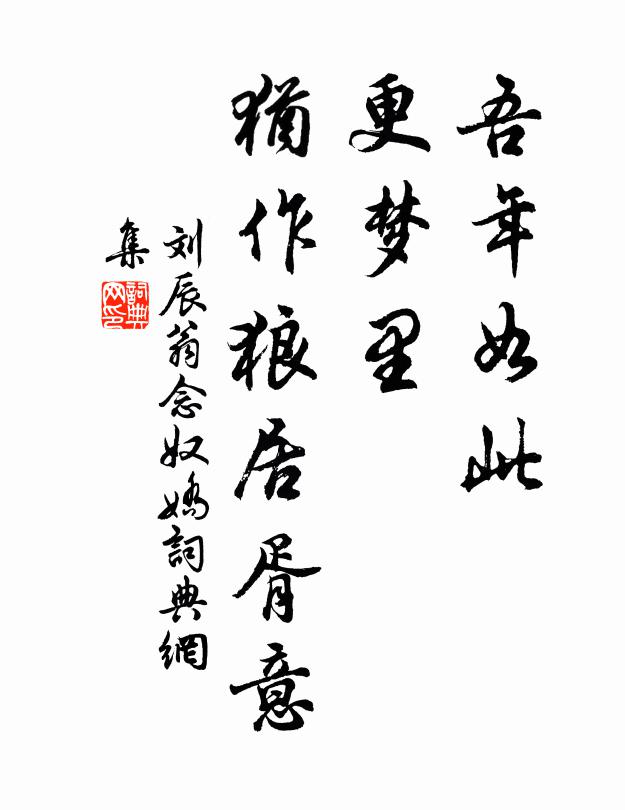 吾年如此
更梦里
犹作狼居胥意
刘辰翁念奴娇詞典網
集
詞典
网印